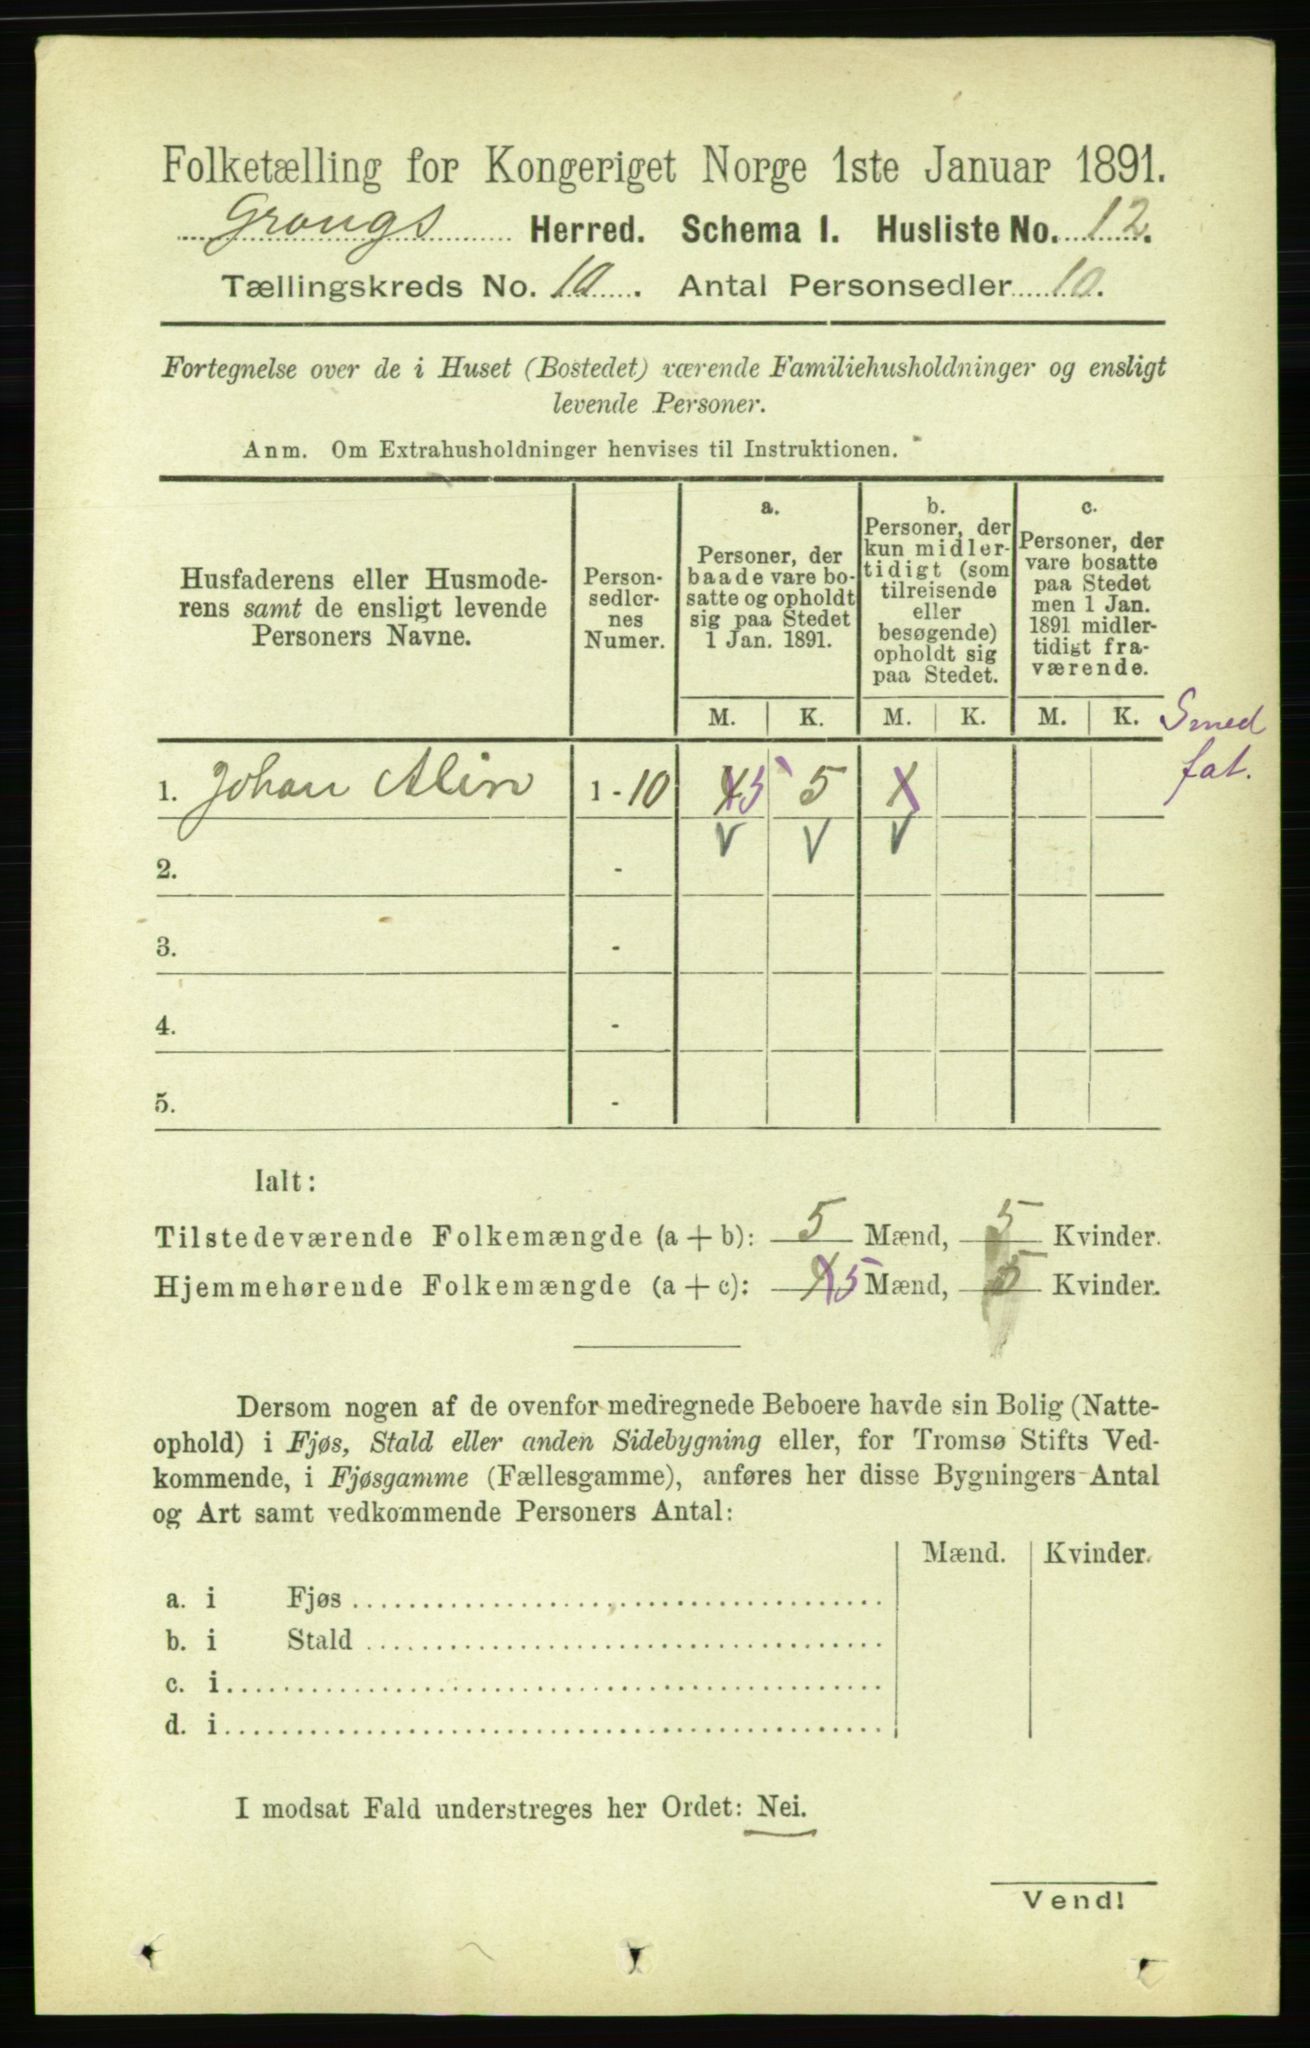 Folketælling for Kongeriget Norge 1ste Januar 1891.
Grongs Herred. Schema I. Husliste No. 12.
Tællingskreds No. 10. Antal Personsedler 10.
Fortegnelse over de i Huset (Bostedet) værende Familiehusholdninger og ensligt
levende Personer.
Anm. Om Extrahusholdninger henvises til Instruktionen.
Husfaderens eller Husmode-
rens samt de ensligt levende
Personers Navne.
Person-
sedler-
nes
Numer.
a.
Personer, der
baade vare bo-
satte og opholdt
sig paa Stedet
1 Jan. 1891.
b.
Personer, der
kun midler-
tidigt (som
tilreisende
eller
besøgende)
opholdt sig
paa Stedet.
c.
Personer, der
vare bosatte
paa Stedet
men 1 Jan.
1891 midler-
tidigt fra-
værende.
M. K. M. K. M. K.
Smed
fat.
1. Johan Alin 1 - 10 4 5 5 1
2. -
3. -
4. -
5. -
Ialt:
Tilstedeværende Folkemængde (a + b): 5 Mænd, 5 Kvinder.
Hjemmehørende Folkemængde (a + c): 4 5 Mænd, 5 Kvinder.
Dersom nogen af de ovenfor medregnede Beboere havde sin Bolig (Natte-
ophold) i Fjøs, Stald eller anden Sidebygning eller, for Tromsø Stifts Ved-
kommende, i Fjøsgamme (Fællesgamme), anføres her disse Bygningers Antal
og Art samt vedkommende Personers Antal:
Mænd. Kvinder.
a. i Fjøs
b. i Stald
c. i
d. i
I modsat Fald understreges her Ordet: Nei.
Vend!